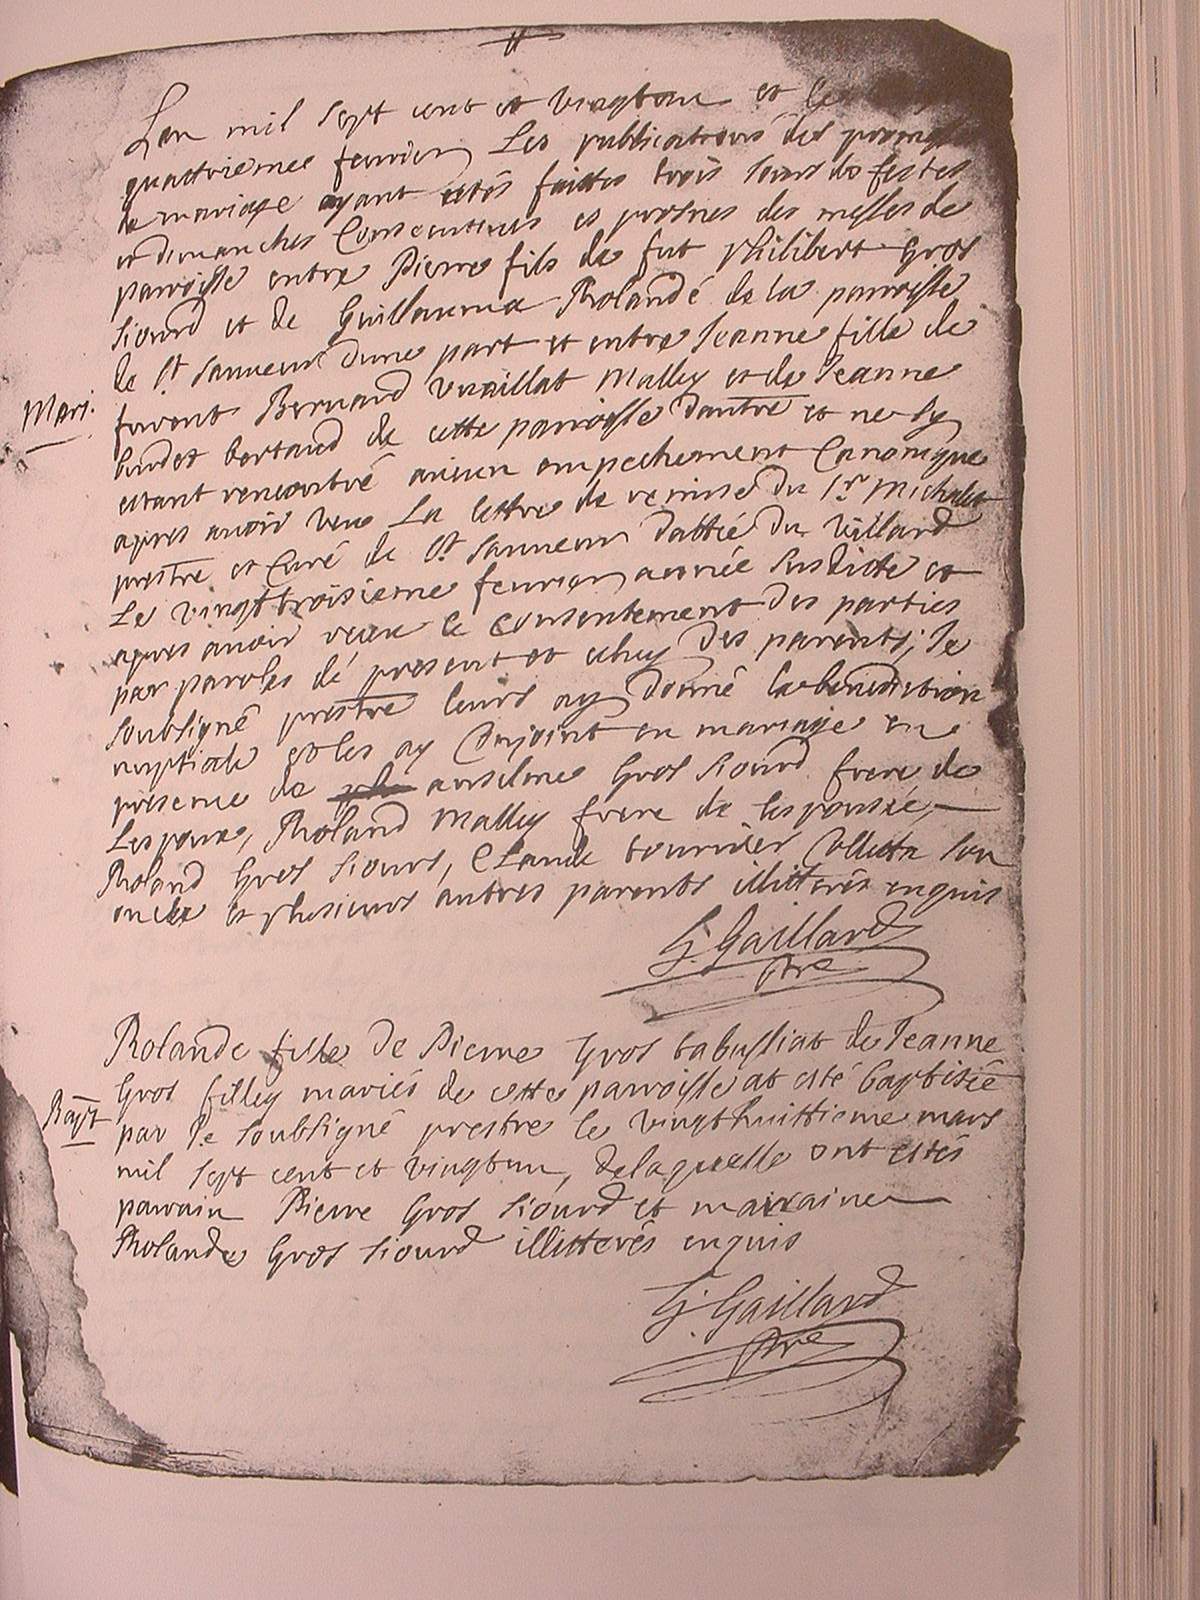 Lan mil sept cent et vingtun et le
quattrieme feurier Les publications des promess
de mariage ayant estés faittes trois Jours de festes
et dimanches Consecutiues es prosnes des messes de
paroisse entre Pierre fils de fut Philibert Gros
Siourd et de Guillauma Rolande de la paroisse
de St Sauueur dune part et entre Jeanne fille de
furent Bernard Vuaillat Malley et de Jeanne
bertaud de cette paroisse dautre et ne sy
Mari.
estant rencontré aucun empechement Canonique
apres auoir veu La lettre de remise du Sr Michalet
prestre et Curé de St Sauueur dattée du Villard
Le vingttroisieme feurier année Susdicte et
apres auoir receu le consentement des parties
par paroles de present et celuy des parents; Je
soubsigné prestre leurs ay donné la benediction
nuptiale et les ay Conjoint en mariage en
presence de anselme Gros Siourd frere de
Lespoux, Roland Malley frere de lespousée,
Roland Gros Siourd, Claude tournier son
oncle et plusieurs autres parents illitterés enquis
G. Gaillard
ptre
Rolande fille de Pierre Gros tabussiat de Jeanne
Gros filley mariés de cette paroisse at esté baptisée
Bapt
par Je soubsigné prestre le vingthuittieme mars
mil sept cent et vingtun, de laquelle ont estés
parrain Pierre Gros Siourd et marraine
Rolande Gros Siourd illitterés enquis
G. Gaillard
ptre